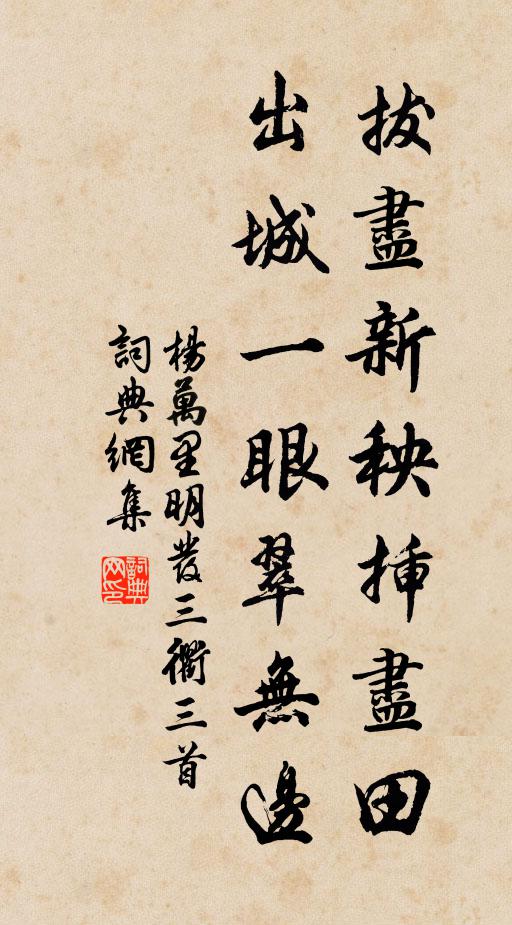 拔盡新秧插盡田
出城一眼翠無邊
楊萬里明發三衢三首
詞典網集
詞典网印